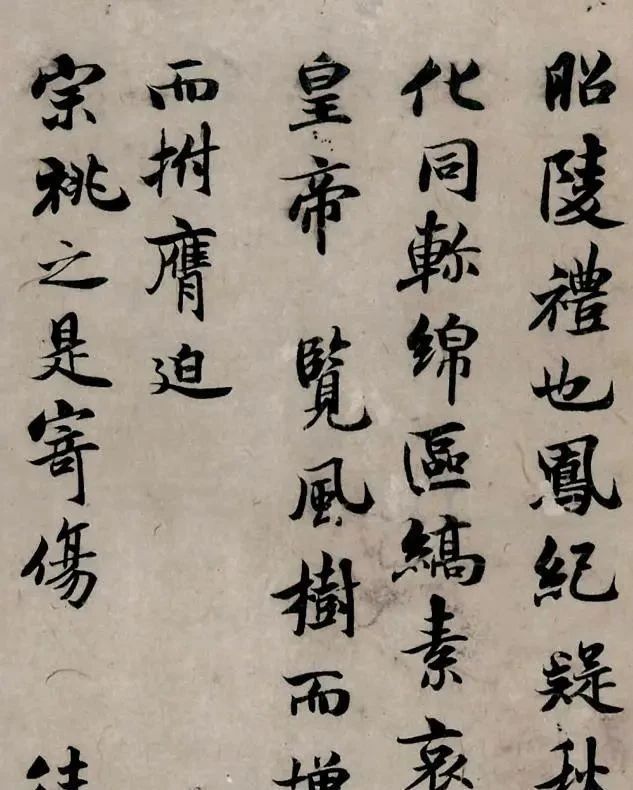 昭陵禮也鳳紀疑秋
化同軫綿區縞素哀
皇帝 覽風樹而增
而拊膺迫
宗祧之是寄傷